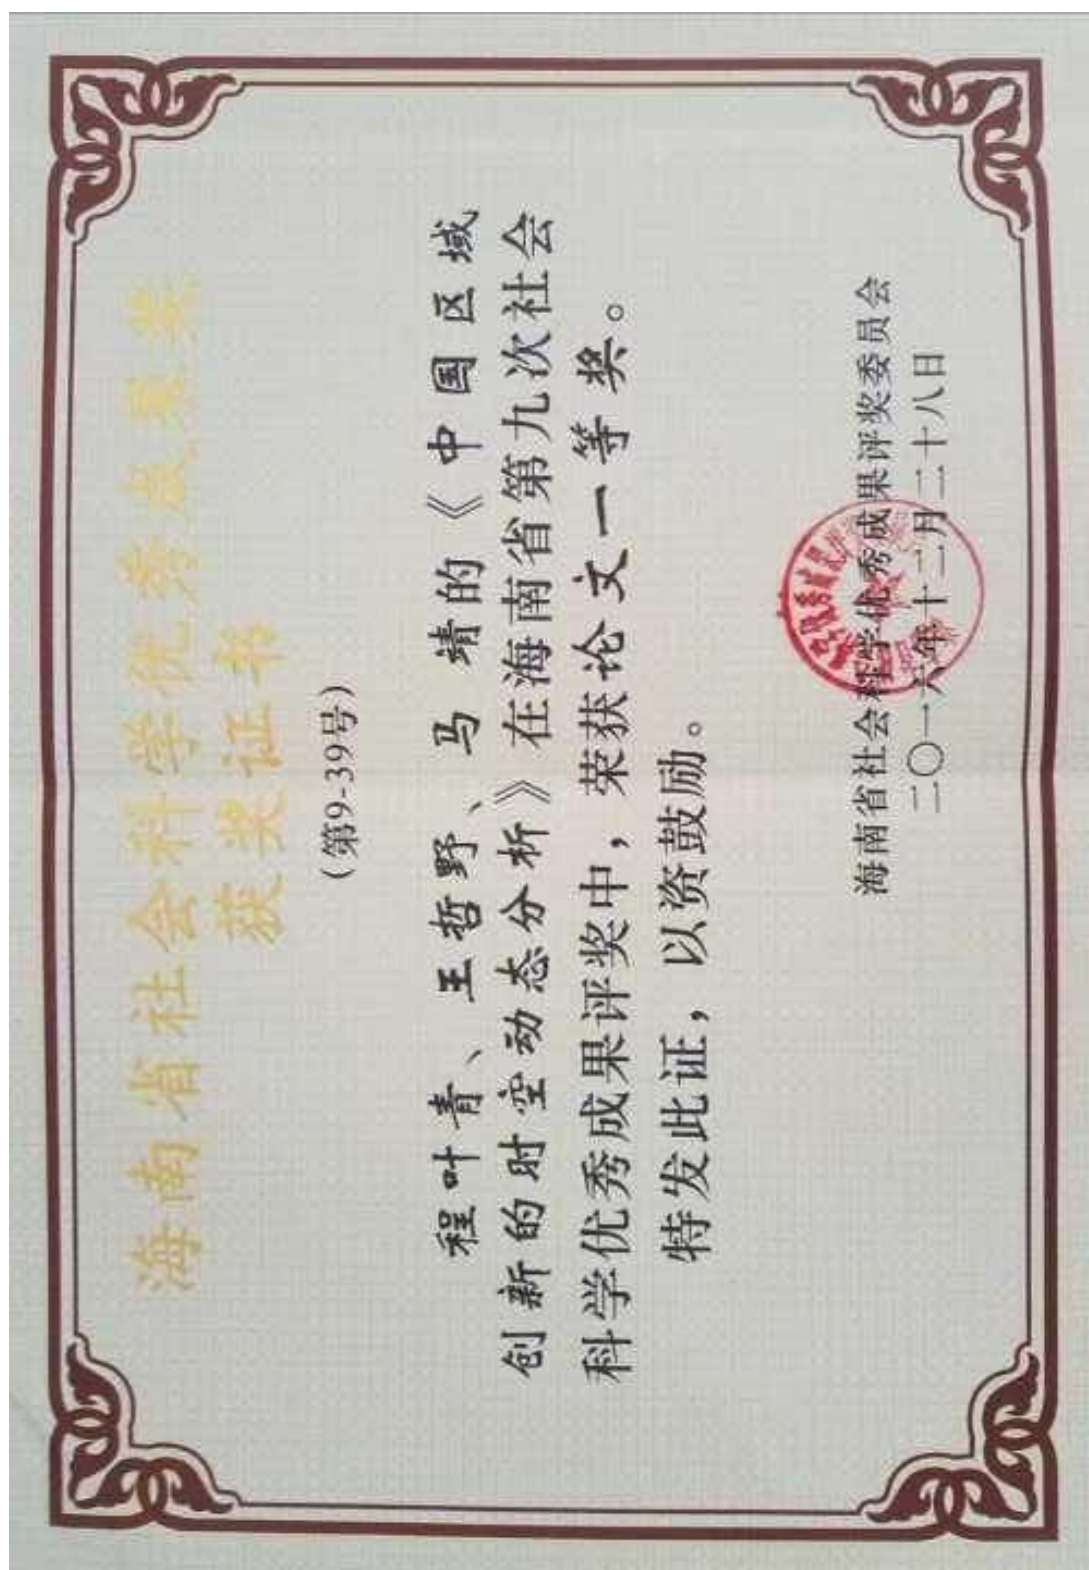 海南省社会科学优秀成果奖
获奖证书
(第9-39号)
程叶青、王哲野、马 靖的《中国区域
创新的时空动态分析》在海南省第九次社会
科学优秀成果评奖中，荣获论文一等奖。
特发此证，以资鼓励。
海南省社会科学优秀成果评奖委员会
二〇一六年十二月二十八日